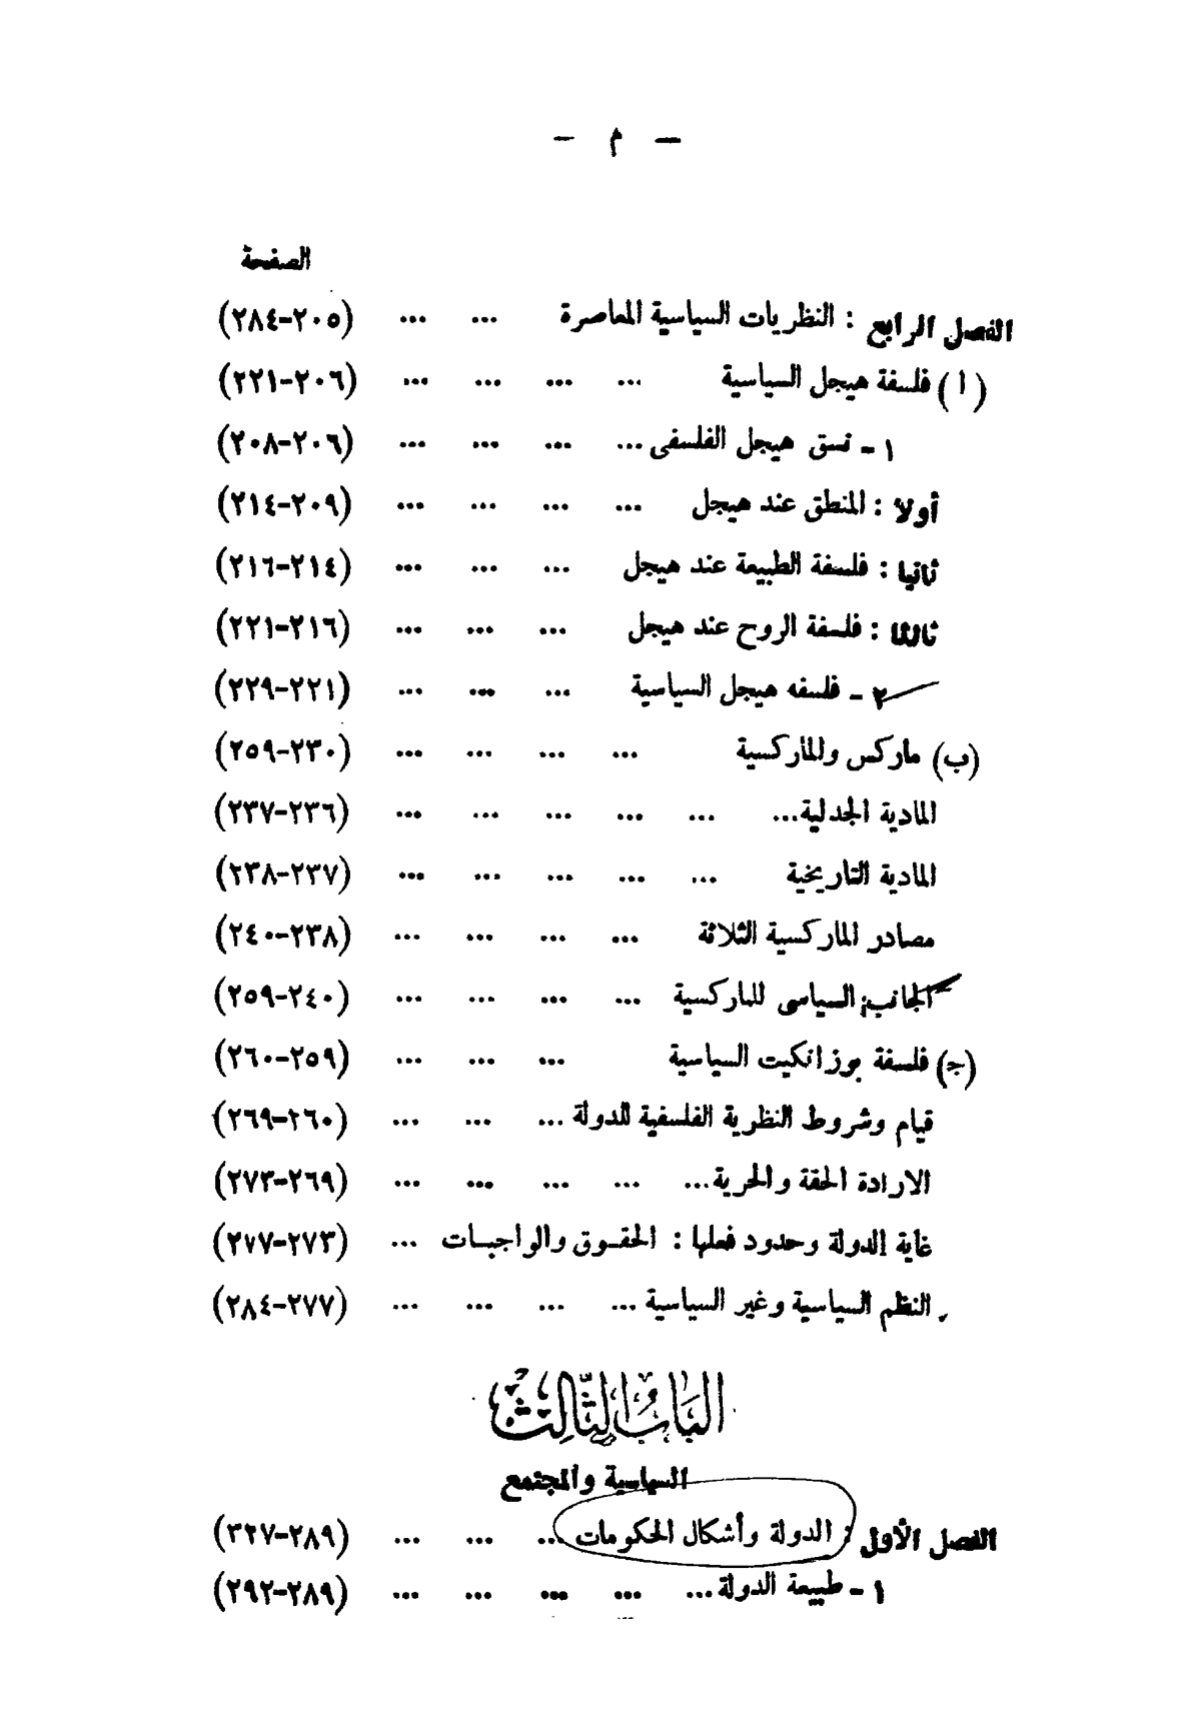 — م —
الصفحة
الفصل الرابع : النظريات السياسية المعاصرة ... ... (٢٠٥-٢٨٤)
(ا) فلسفة هيجل السياسية ... ... ... ... (٢٠٦-٢٢١)
١ - نسق هيجل الفلسفى ... ... ... ... (٢٠٦-٢٠٨)
أولا : المنطق عند هيجل ... ... ... ... (٢٠٩-٢١٤)
ثانيا : فلسفة الطبيعة عند هيجل ... ... ... (٢١٤-٢١٦)
ثالثا : فلسفة الروح عند هيجل ... ... ... (٢١٦-٢٢١)
٢ - فلسفه هيجل السياسية ... ... ... (٢٢١-٢٢٩)
(ب) ماركس والماركسية ... ... ... ... (٢٣٠-٢٥٩)
المادية الجدلية ... ... ... ... ... ... (٢٣٦-٢٣٧)
المادية التاريخية ... ... ... ... ... (٢٣٧-٢٣٨)
مصادر الماركسية الثلاثة ... ... ... ... (٢٣٨-٢٤٠)
الجانب السياسى للماركسية ... ... ... ... (٢٤٠-٢٥٩)
(ج) فلسفة بوزانكيت السياسية ... ... ... (٢٥٩-٢٦٠)
قيام وشروط النظرية الفلسفية للدولة ... ... ... (٢٦٠-٢٦٩)
الارادة الحقة والحرية ... ... ... ... ... (٢٦٩-٢٧٣)
غاية الدولة وحدود فعلها : الحقوق والواجبات ... (٢٧٣-٢٧٧)
النظم السياسية وغير السياسية ... ... ... ... (٢٧٧-٢٨٤)
البَابُ الثَّالِث
السياسية والمجتمع
الفصل الأول : الدولة وأشكال الحكومات ... ... ... (٢٨٩-٣٢٧)
١ - طبيعة الدولة ... ... ... ... ... (٢٨٩-٢٩٢)